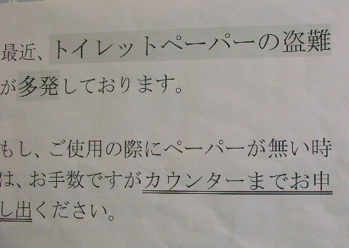 最近、トイレットペーパーの盗難
が多発しております。
もし、ご使用の際にペーパーが無い時
は、お手数ですがカウンターまでお申
し出ください。